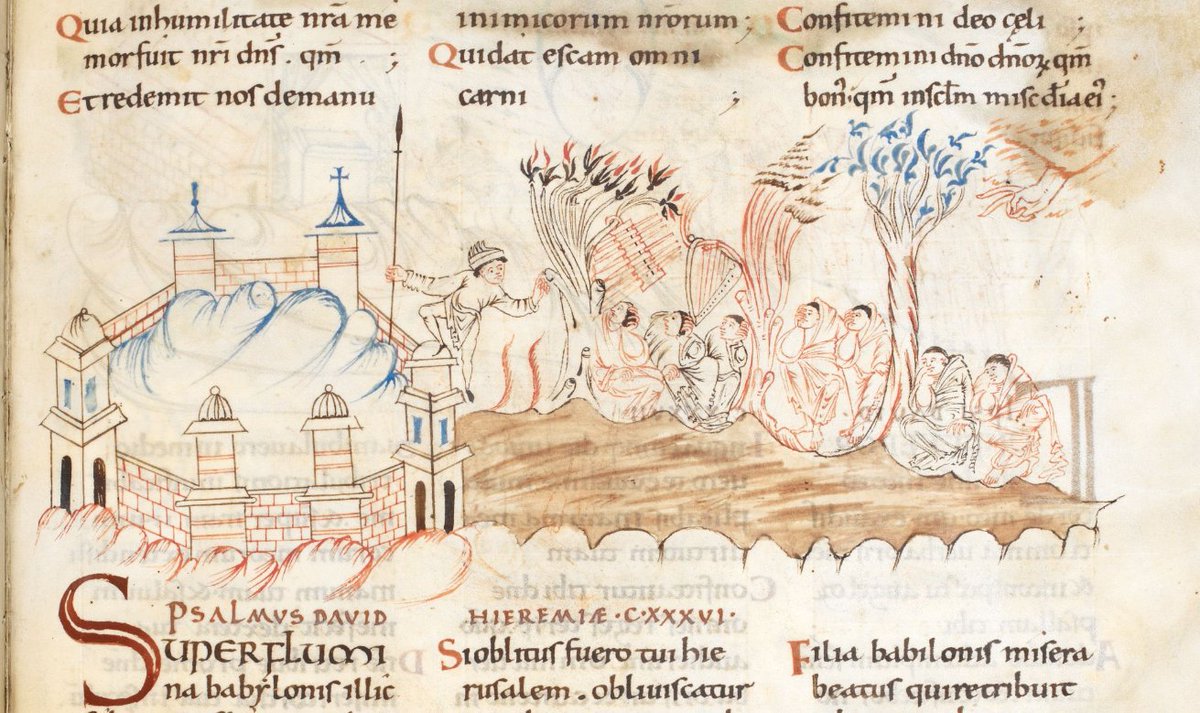 Quia inhumilitate nr̄a me
morfuit nr̄i dn̄s . qm̄ ;
Et redemit nos demanu
inimicorum nr̄orum ;
Quidat escam omni
carni ;
Confitemini deo cęli ;
Confitemini dn̄o dn̄oꝝ qm̄
bon᷒· qm̄ inscl̄m misc̄dīa ei᷒ ;
PSALMUS DAVID HIEREMIÆ · C·XXXVI·
SUPERFLUMI
na babylonis illic
Sioblitus fuero tui hie
rusalem . obliviscatur
Filia babilonis misera
beatus quiretribuit